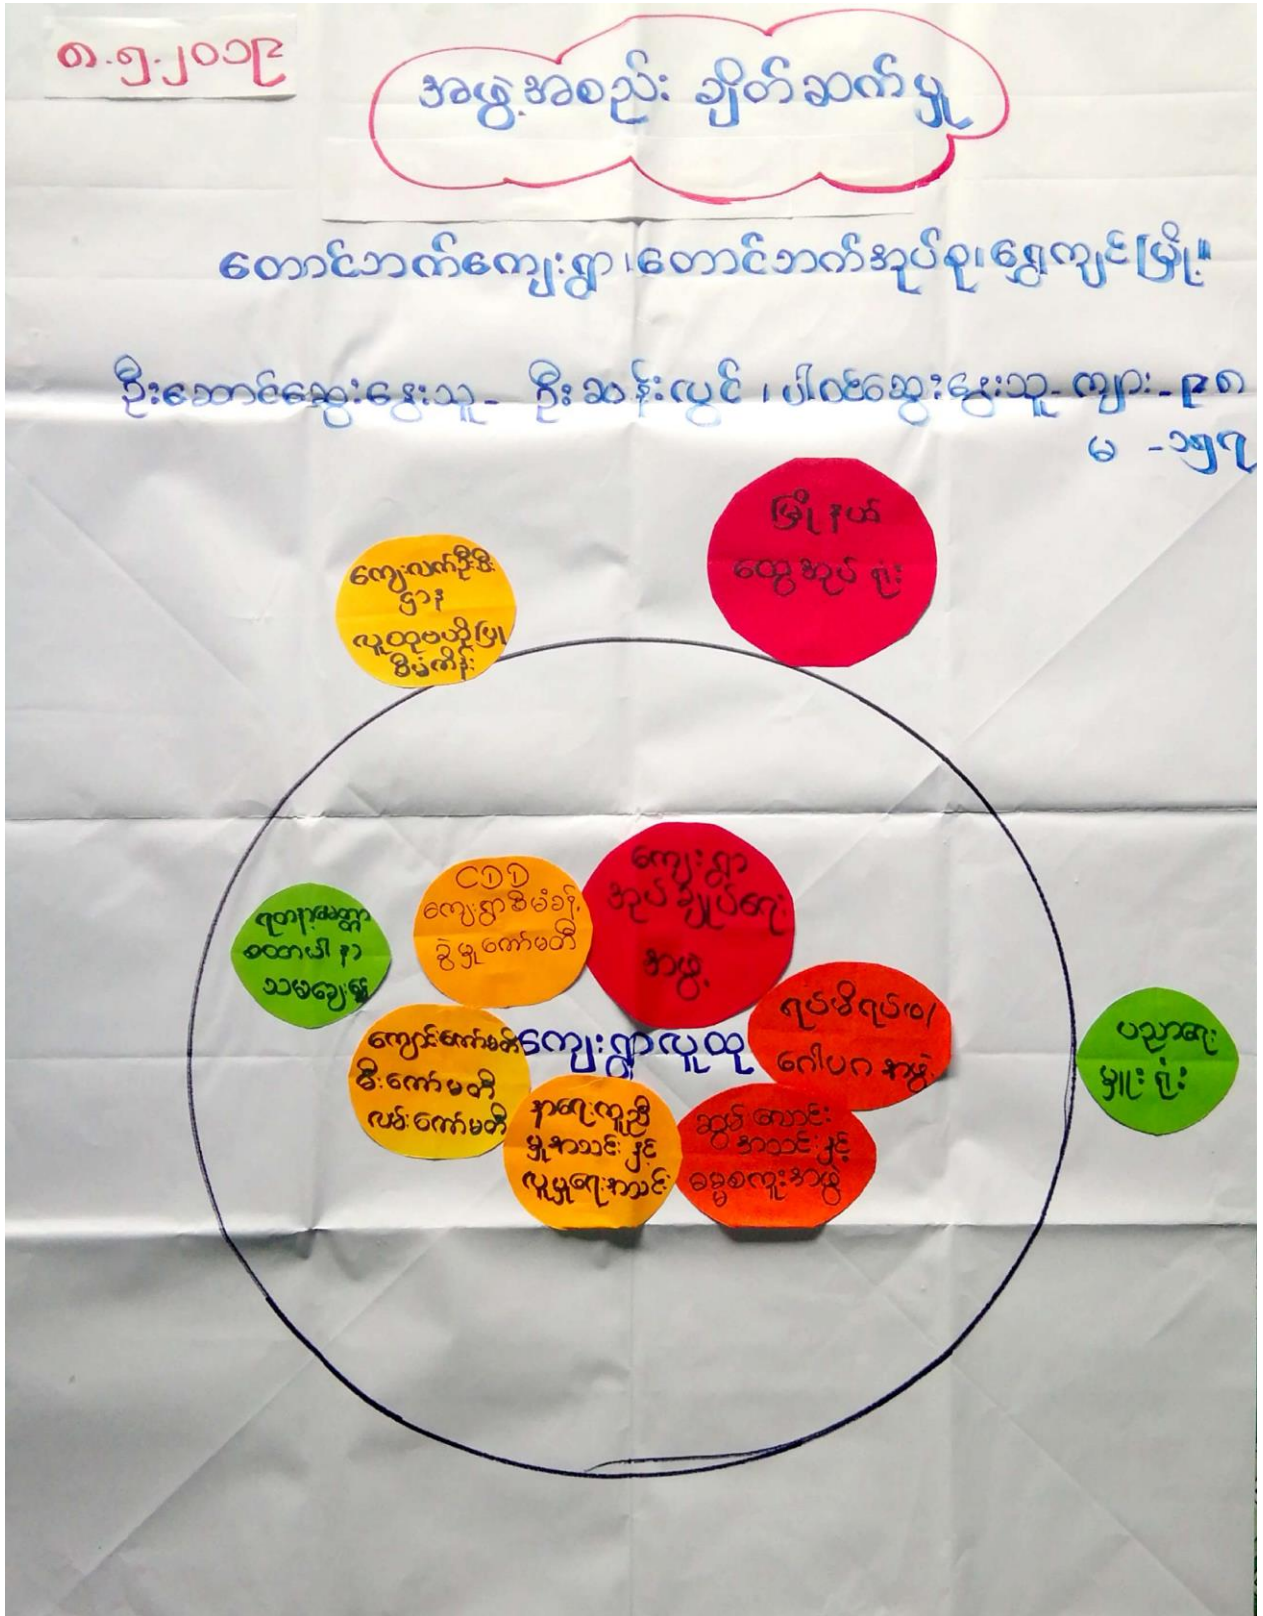 ၈.၅.၂၀၁၉
အဖွဲ့အစည်း ချိတ်ဆက်မှု
တောင်ဘက်ကျေးရွာ၊တောင်ဘက်အုပ်စု၊ရွှေကျင်မြို့။
ဦးဆောင်ဆွေးနွေးသူ- ဦးဆန်းလွင် ၊ ပါဝင်ဆွေးနွေးသူ-ကျား-၉၈
မ -၁၅၇
မြို့နယ်
ထွေအုပ်ရုံး
ကျေးလက်ဦးစီး
ဌာန
လူထုဗဟိုပြု
စီမံကိန်း
ကျေးရွာ
အုပ်ချုပ်ရေး
အဖွဲ့
CDD
ကျေးရွာစီမံခန့်
ခွဲမှုကော်မတီ
ရတနာ့မေတ္တာ
စေတာပါနာ
သမချေး
ကျောင်းကော်မတီ
မီးကော်မတီ
လမ်းကော်မတီ
ကျေးရွာလူထု
ရပ်မိရပ်ဖ/
ဂေါပကအဖွဲ့
ပညာရေး
မှူးရုံး
နာရေးကူညီ
မှုအသင်းနှင့်
လူမှုရေးအသင်း
ဆွမ်လောင်း
အသင်းနှင့်
ဓမ္မစကူးအဖွဲ့